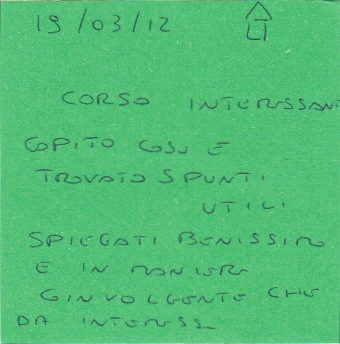 19/03/12
CORSO INTERESSAN
CAPITO COSE E
TROVATO SPUNTI
UTILI
SPIEGATI BENISSIMO
E IN MANIERA
COINVOLGENTE CHE
DA INTERESSE